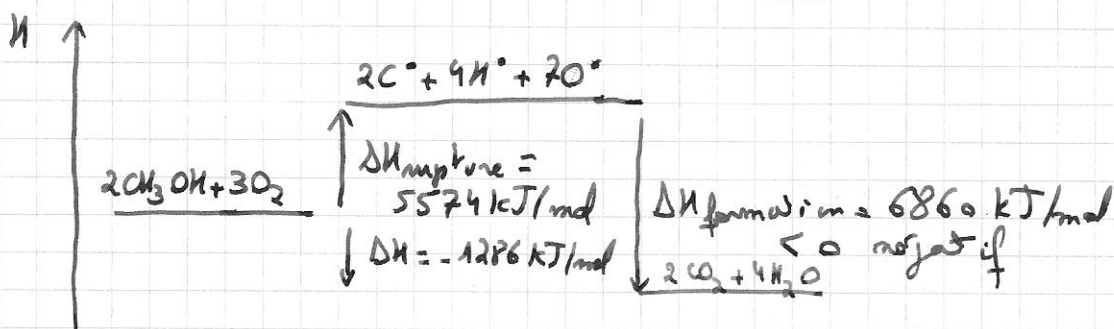 H
2C° + 4H° + 7O°
2CH₃OH + 3O₂
ΔH rupture =
5574 kJ/mol
ΔH = - 1286 KJ/mol
ΔH formation = 6860 kJ/mol
< 0 négatif
2CO₂ + 4H₂O